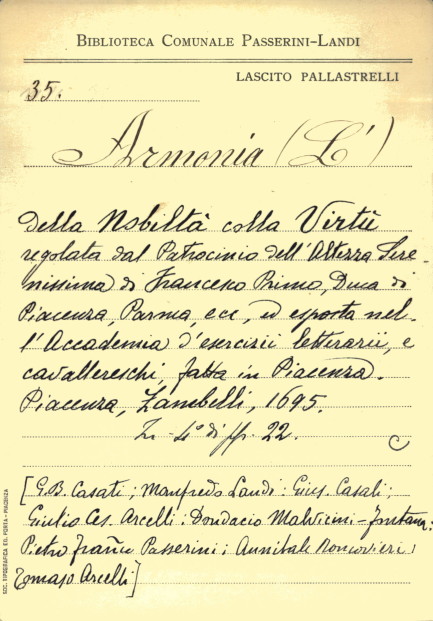 BIBLIOTECA COMUNALE PASSERINI-LANDI
LASCITO PALLASTRELLI
35.
Armonia (L')
della Nobiltà colla Virtù
regolata dal Patrocinio dell'Altezza Sere-
nissima di Francesco Primo, Duca di
Piacenza, Parma, ecc, ed esposta nel-
l'Accademia d'esercizii letterarii, e
cavallereschi, fatta in Piacenza.
Piacenza, Zambelli, 1695.
In-4° di ff. 22.
[G.B. Casati; Manfredo Landi: Gius. Casali;
Giulio Ces. Arcelli: Dondacio Malvicini-Fontana:
Pietro Franc° Passerini; Annibale Roncovieri:
Tomaso Arcelli]
SOC. TIPOGRAFICA ED. PORTA - PIACENZA